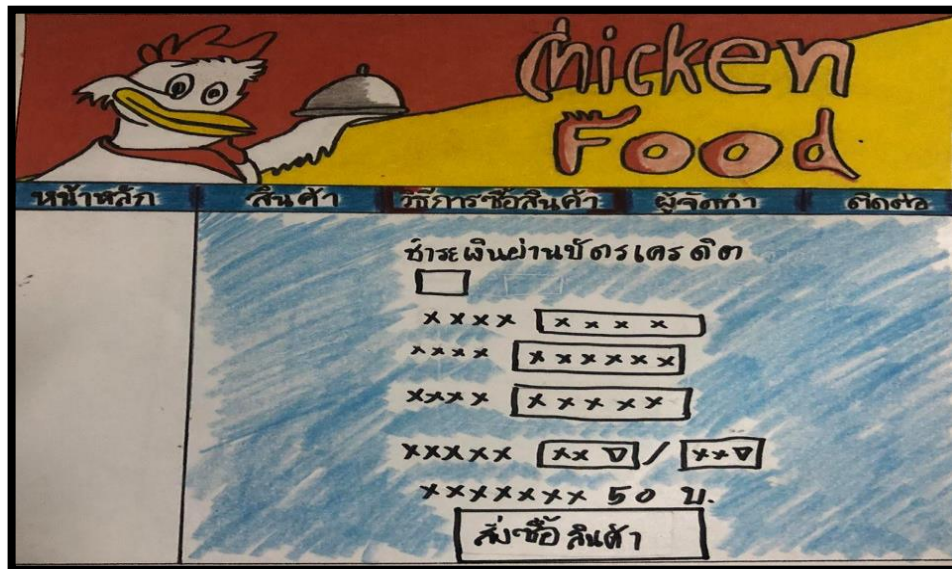 Chicken
Food
หน้าหลัก สินค้า วิธีการซื้อสินค้า ผู้จัดทำ ติดต่อ
ชำระเงินผ่านบัตรเครดิต
xxxx xxxx
xxxx xxxxxx
xxxx xxxxx
xxxxx xx / xx
xxxxxxx 50 บ.
สั่งซื้อสินค้า